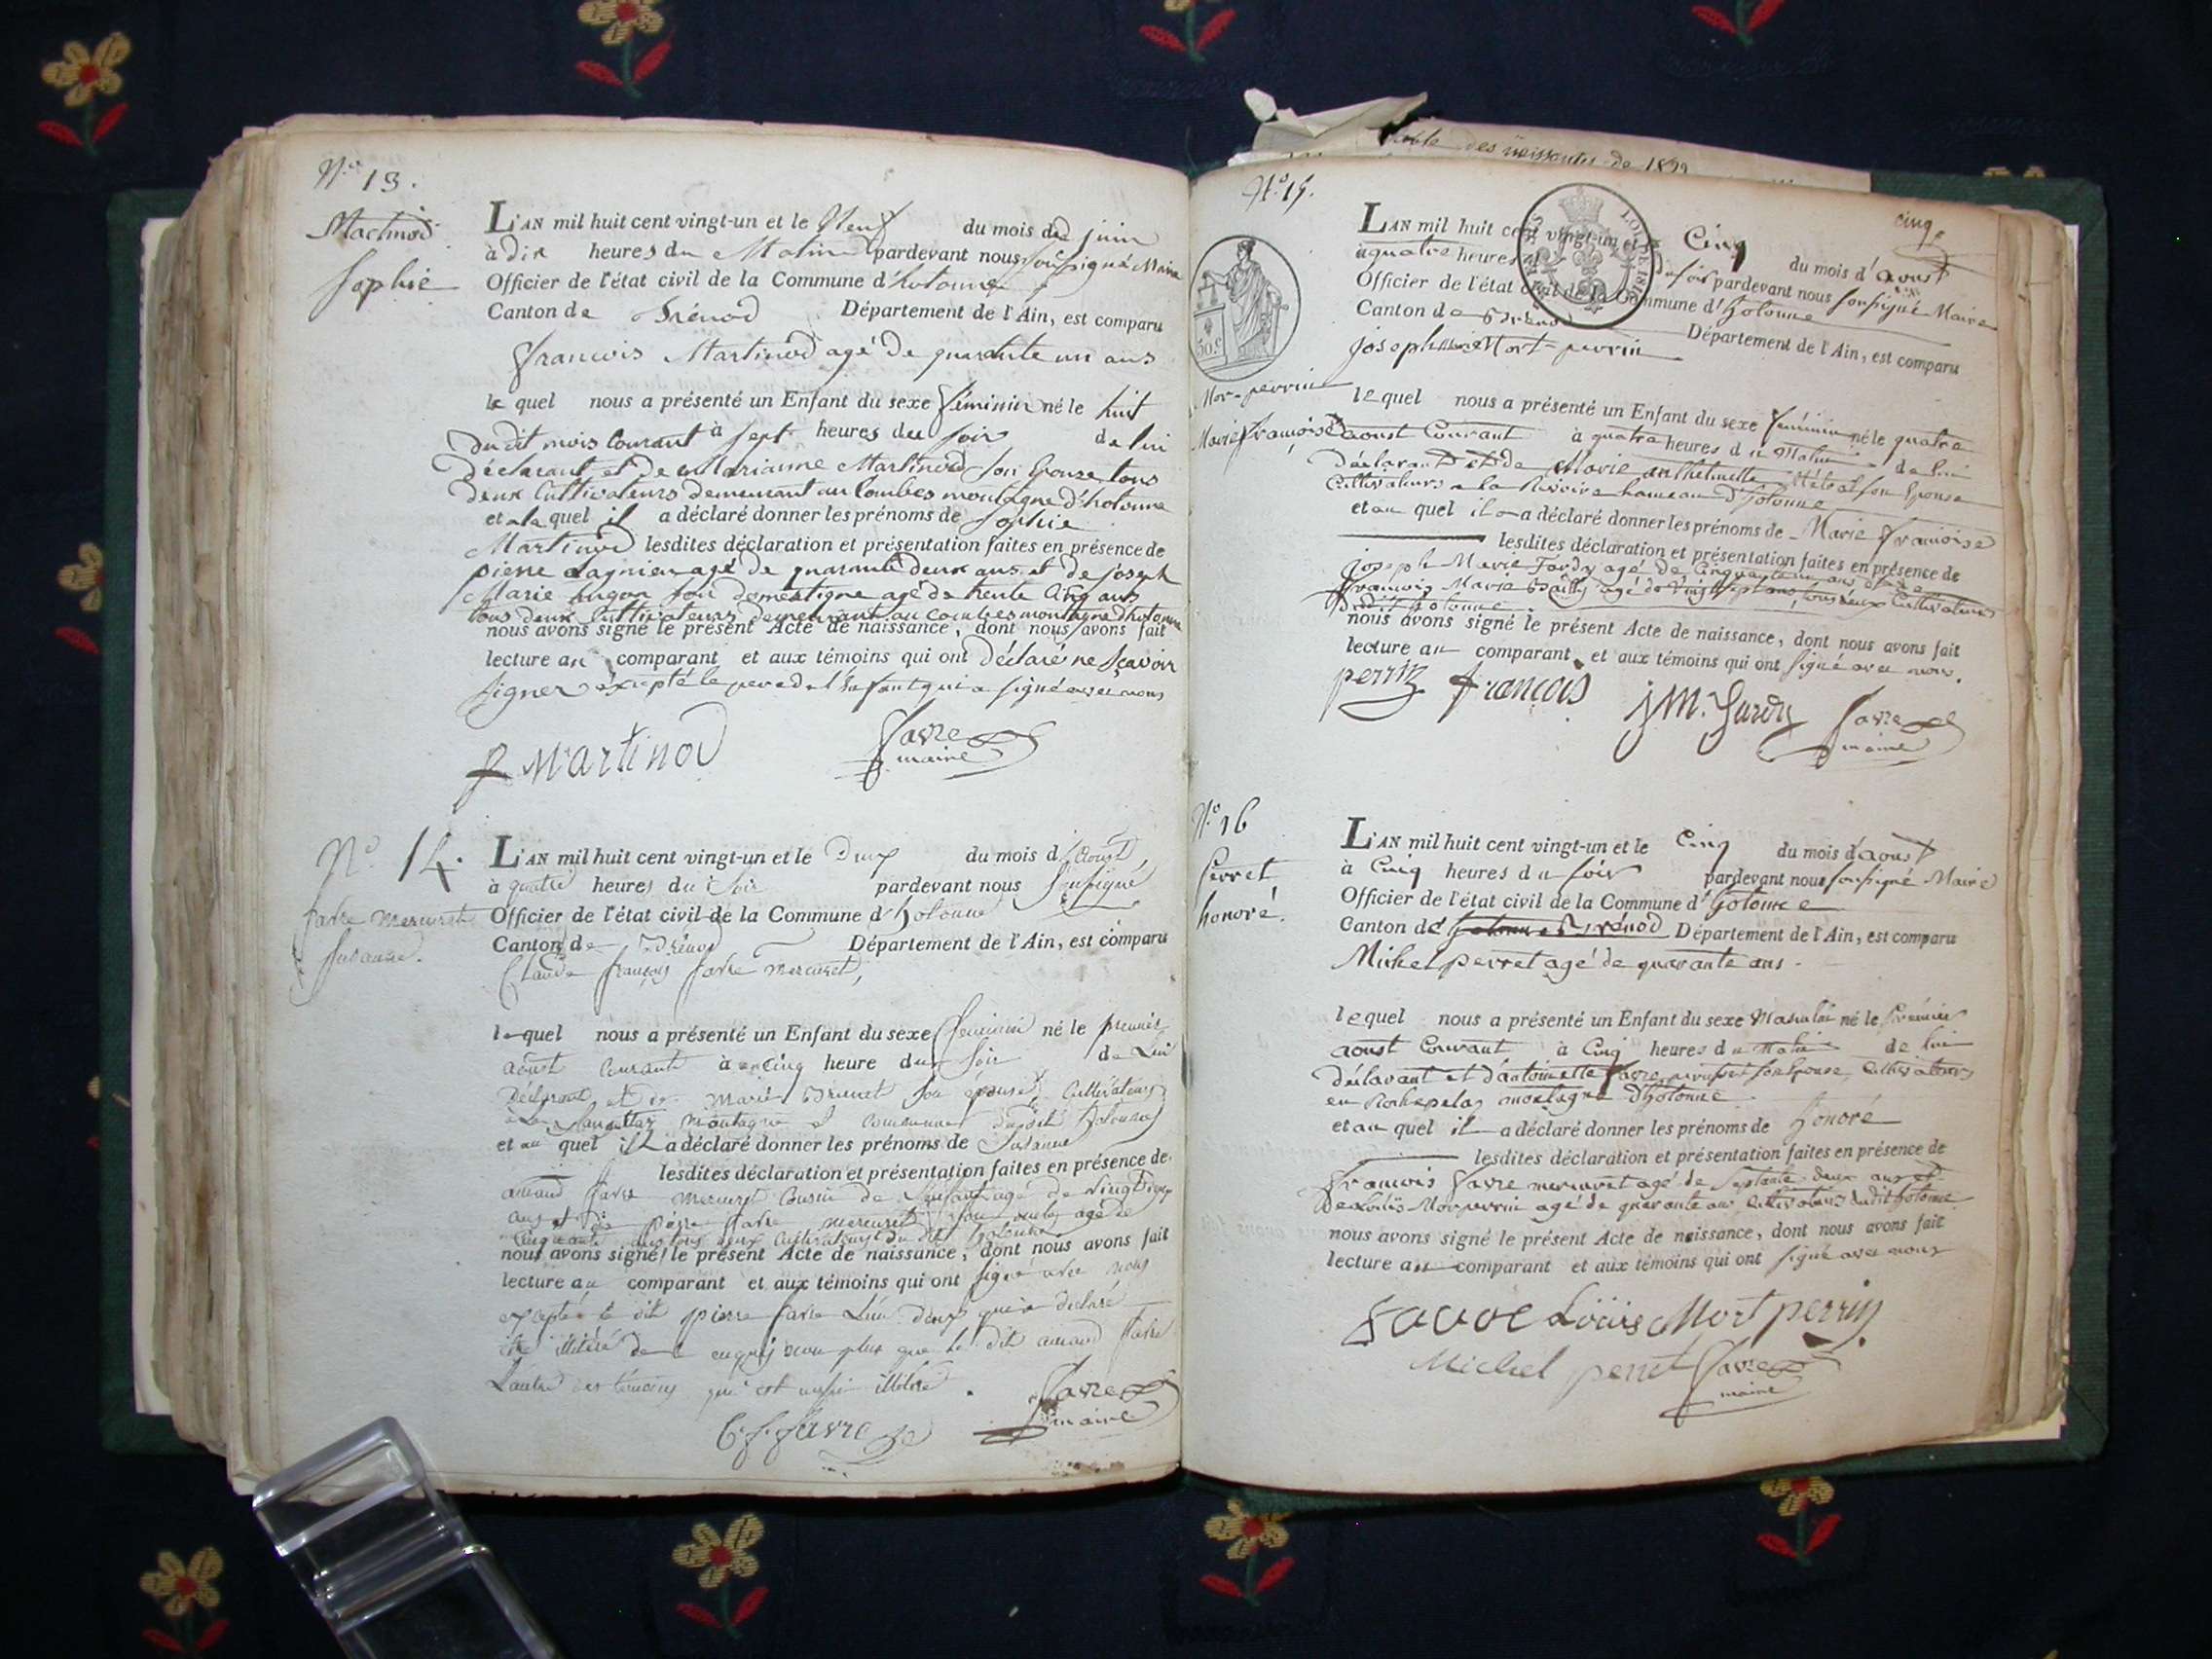 N.o 13.
Martinod
Sophie
L'AN mil huit cent vingt-un et le Neuf du mois de juin
à dix heures du Matin pardevant nous soussigné Maire
Officier de l'état civil de la Commune d'hotonne
Canton de Brénod Département de l'Ain, est comparu
francois Martinod agé de quarante un ans
le quel nous a présenté un Enfant du sexe féminin né le huit
du dit mois Courant à sept heures du soir de lui
déclarant et de Marianne Martinod son épouse tous
deux Cultivateurs demeurant au Combes montagne d'hotonne
et a la quel il a déclaré donner les prénoms de Sophie
Martinod lesdites déclaration et présentation faites en présence de
pierre agé de quarante deux ans et de joseph
Marie hugon son domestique agé de trente Cinq ans
tous deux Cultivateurs demeurant au combes montagne d'hotonne
nous avons signé le présent Acte de naissance, dont nous avons fait
lecture au comparant et aux témoins qui ont déclaré ne sçavoir
signer éxcepté le pere de l'Enfant qui a signé avec nous
f Martinod
favre
maire
N.o 14.
favre mercuret
susanne.
L'AN mil huit cent vingt-un et le Deux du mois d'Aoust,
à quatre heures du soir pardevant nous soussigné
Officier de l'état civil de la Commune d'hotonne
Canton de Brénod Département de l'Ain, est comparu
Claude françois favre mercuret,
le quel nous a présenté un Enfant du sexe féminin né le premier
aoust courant à cinq heure du soir de Lui
Déclarant et de Marie Brunet son épouse Cultivateurs
montagne et commune dudit hotonne
et au quel il a déclaré donner les prénoms de Susanne
lesdites déclaration et présentation faites en présence de
amand favre mercuret Cousin de l'enfant agé de vingt
ans et de pierre favre mercuret son oncle agé de
Cinquante ans tous deux Cultivateurs du dit hotonne
nous avons signé le présent Acte de naissance, dont nous avons fait
lecture au comparant et aux témoins qui ont signé avec nous
excepté le dit pierre favre L'un deux qui a déclaré
être illitéré de ce enquis non plus que le dit amand favre
L'autre des témoins qui est aussi illitéré.
C. f. favre
favre
maire
Table des naissances de 1822
cinq
N.o 15.
50.c
Mor-perrin
Marie françoise
L'AN mil huit cent vingt-un et le Cinq du mois d'aoust
à quatre heures du soir pardevant nous soussigné Maire
Officier de l'état civil de la Commune d'hotonne
Canton de Brénod Département de l'Ain, est comparu
joseph Mort-perrin
le quel nous a présenté un Enfant du sexe féminin né le quatre
aoust Courant à quatre heures du Matin de lui
déclarant et de Marie anthelmette son Epouse
Cultivateurs a la Rivoire hameau d'hotonne
et au quel il a déclaré donner les prénoms de Marie françoise
lesdites déclaration et présentation faites en présence de
joseph Marie Jardy agé de Cinquante un ans et de
francois Marie Bailly agé de vingt sept ans, tous deux Cultivateurs
dudit hotonne
nous avons signé le présent Acte de naissance, dont nous avons fait
lecture au comparant et aux témoins qui ont signé avec nous.
perrin françois
J M. Jardy
favre
maire
N.o 16
Perret
honoré.
L'AN mil huit cent vingt-un et le Cinq du mois d'aoust
à Cinq heures du soir pardevant nous soussigné Maire
Officier de l'état civil de la Commune d'hotonne
Canton de hotonne Brénod Département de l'Ain, est comparu
Michel perret agé de quarante ans
le quel nous a présenté un Enfant du sexe Masculin né le premier
aoust Courant à Cinq heures du Matin de lui
déclarant et d'antoinette favre mercuret son Epouse, Cultivateurs
en montagne d'hotonne
et au quel il a déclaré donner les prénoms de honoré
lesdites déclaration et présentation faites en présence de
francois favre mercuret agé de Septante deux ans et
de Loüis Morperrin agé de quarante ans Cultivateurs dudit hotonne
nous avons signé le présent Acte de naissance, dont nous avons fait
lecture au comparant et aux témoins qui ont signé avec nous
favre Loüis Mort perrin
Michel perret
favre
maire